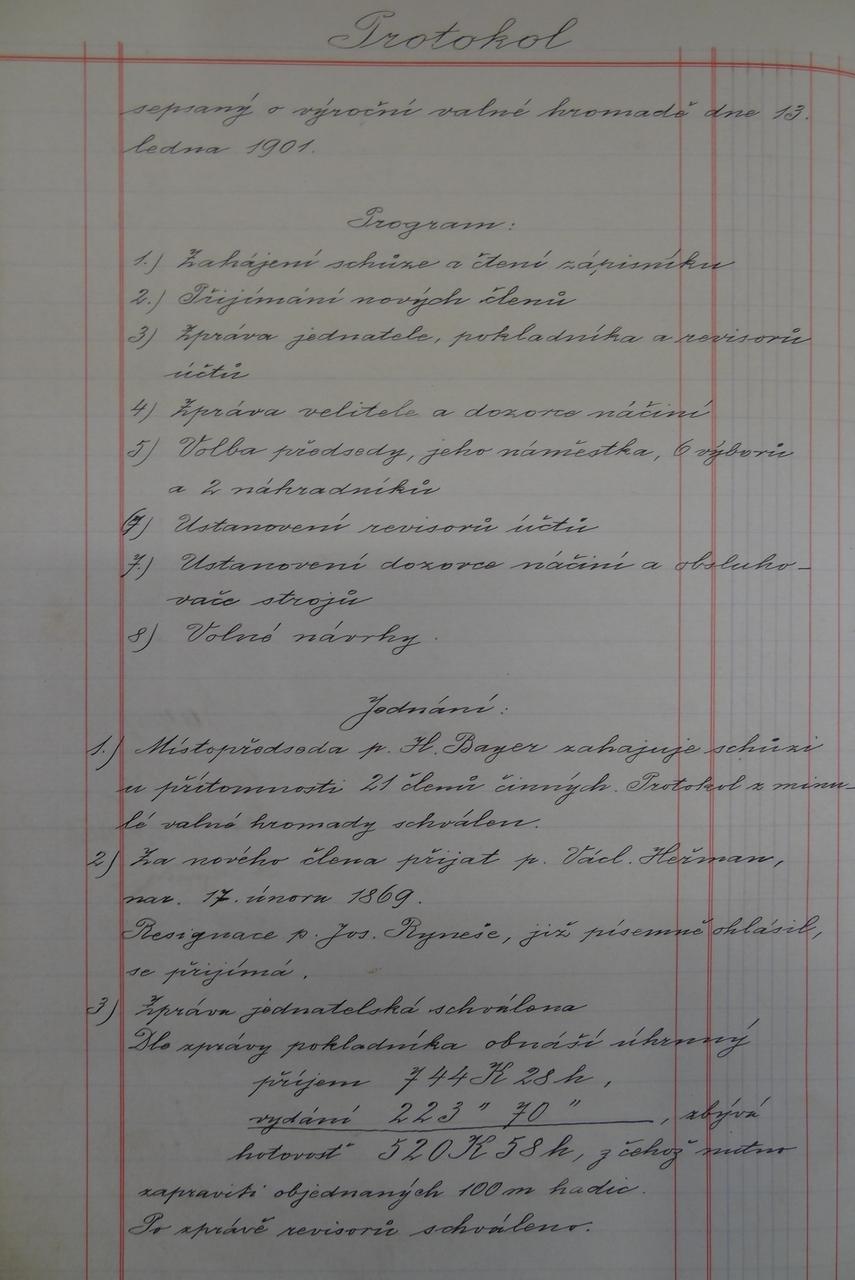 Protokol
sepsaný o výroční valné hromadě dne 13.
ledna 1901.
Program:
1.) Zahájení schůze a čtení zápisníku
2.) Přijímání nových členů
3) Zpráva jednatele, pokladníka a revisorů
účtů
4) Zpráva velitele a dozorce náčiní
5) Volba předsedy, jeho náměstka, 6 výborů
a 2 náhradníků
Ustanovení revisorů účtů
7.) Ustanovení dozorce náčiní a obsluho-
vače strojů
8) Volné návrhy.
Jednání:
1.) Místopředseda p. H. Bayer zahajuje schůzi
u přítomnosti 21 členů činných. Protokol z minu-
lé valné hromady schválen.
2) Za nového člena přijat p. Václ. Heřman,
nar. 17. února 1869.
Resignace p. Jos. Ryneše, již písemně ohlásil,
se přijímá.
3) Zpráva jednatelská schválena
Dle zprávy pokladníka obnáší úhrnný
příjem 744 K 28 h,
vydání 223 " 70 " , zbývá
hotovost 520 K 58 h, z čehož nutno
zapraviti objednaných 100 m hadic.
Po zprávě revisorů schváleno.